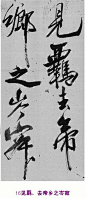 見羈去帝
鄉之岑寂
16见羁。去帝乡之岑寂